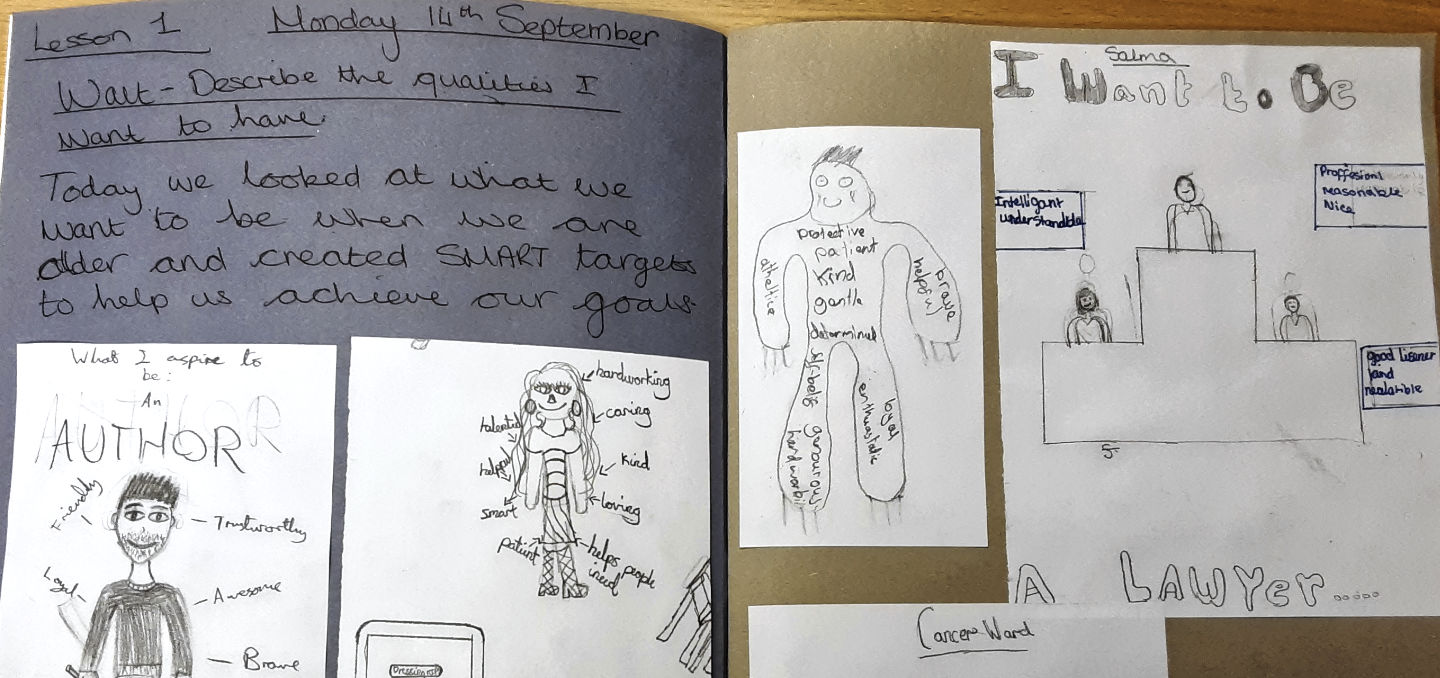 Lesson 1 Monday 14th September
Walt - Describe the qualities I
want to have.
Today we looked at what we
want to be when we are
older and created SMART targets
to help us achieve our goals.
What I aspire to
be:
An
AUTHOR
Friendly
Trustworthy
Loyal
Awesome
Brave
hardworking
caring
talented
helpful
kind
smart
loving
patient
helps people
ineed
protective
patient
kind
gentle
determined
atheltice
brave
helpful
self-belif
loyal
enthusastic
Salma
I Want to Be
Intelligant
understandable
Proffesional
reasonable
Nice
good lisener
kind
A LAWYer.....
Cancer Ward